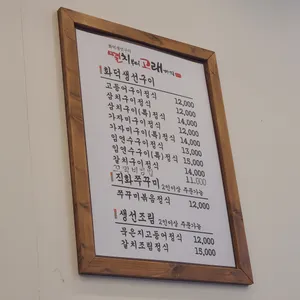 멸치부터 고래까지
화덕생선구이
고등어구이정식 12,000
삼치구이정식 12,000
삼치구이(특)정식 14,000
가자미구이정식 12,000
가자미구이(특)정식 14,000
임연수구이정식 13,000
임연수구이(특)정식 15,000
갈치구이정식 14,000
11,000
직화쭈꾸미 2인이상 주문가능
쭈꾸미볶음정식 12,000
생선조림 2인이상 주문가능
묵은지고등어정식 12,000
갈치조림정식 15,000